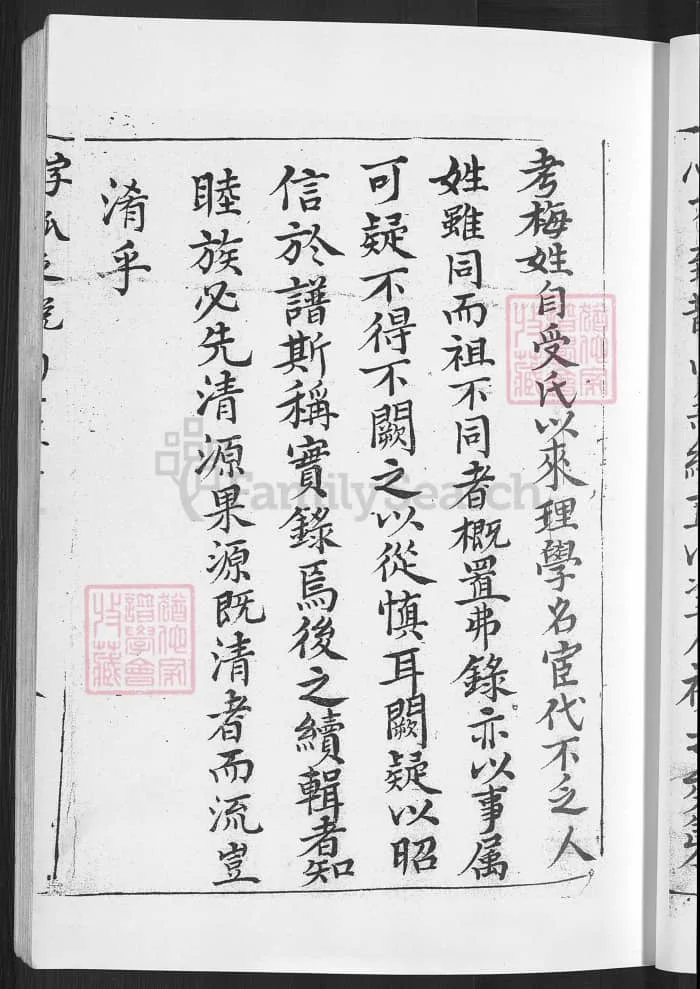 考梅姓自受氏以來理學名宦代不乏人
姓雖同而祖不同者概置弗錄亦以事属
可疑不得不闕之以從慎耳闕疑以昭
信於譜斯稱實錄焉後之續輯者知
睦族必先清源果源既清者而流豈
淆乎
FamilySearch